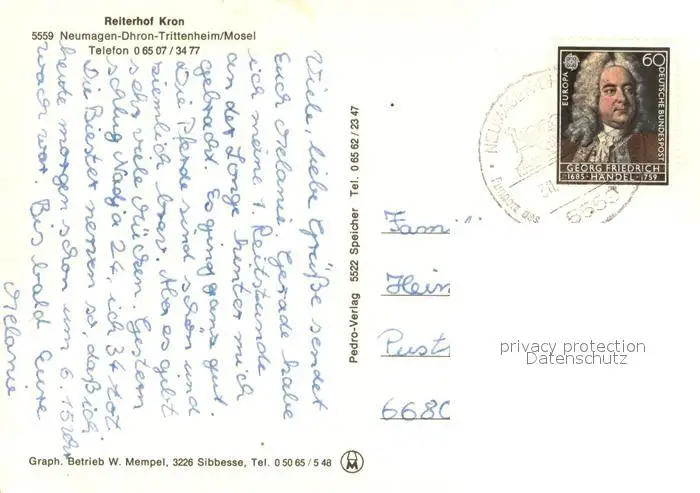 Reiterhof Kron
5559 Neumagen-Dhron-Trittenheim/Mosel
Telefon 0 65 07 / 34 77
Viele, liebe Grüße sendet
Euch Melanie. Gerade habe
ich meine 1. Reitstunde
an der Longe hinter mich
gebracht. Es ging ganz gut.
Die Pferde sind schön und
ziemlich brav. Aber es gibt
sehr viele Mücken. Gestern
schlug Nadja 24, ich 34 tot.
Die Biester nerven so, daß ich
heute morgen schon um 6.15 Uhr
wach war. Bis bald Eure
Melanie
Pedro-Verlag 5522 Speicher Tel. 0 65 62 / 23 47
EUROPA
60
DEUTSCHE BUNDESPOST
GEORG FRIEDRICH
1685 · HÄNDEL · 1759
5559
Fam
Hein
Pust
6680
privacy protection
Datenschutz
Graph. Betrieb W. Mempel, 3226 Sibbesse, Tel. 0 50 65 / 5 48